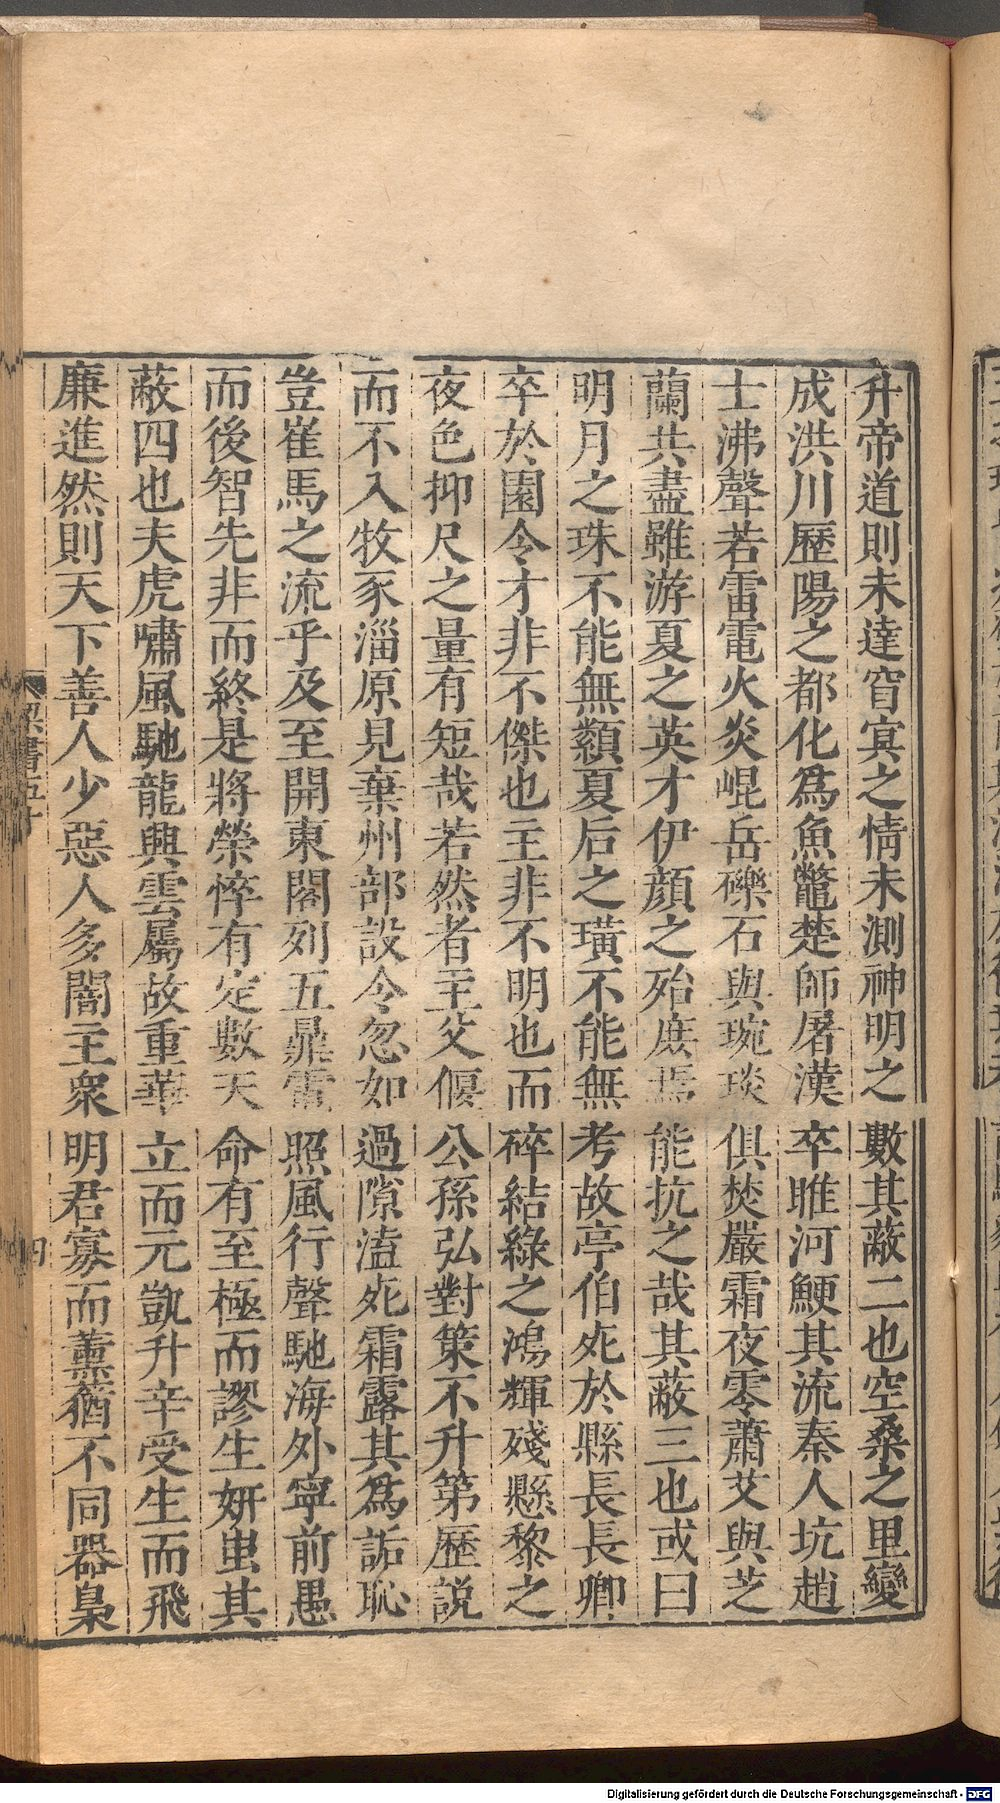 升帝道則未達窅冥之情未測神明之數其蔽二也空桑之里變
成洪川歷陽之都化爲魚鼈楚師屠漢卒睢河鯁其流秦人坑趙
士沸聲若雷電火炎崐岳礫石與琬琰俱焚嚴霜夜零蕭艾與芝
蘭共盡雖游夏之英才伊顏之殆庶焉能抗之哉其蔽三也或曰
明月之珠不能無纇夏后之璜不能無考故亭伯死於縣長長卿
卒於園令才非不傑也主非不明也而碎結綠之鴻輝殘懸黎之
夜色抑尺之量有短哉若然者主父偃公孫弘對策不升第歷說
而不入牧豕淄原見棄州部設令忽如過隙溘死霜露其爲詬恥
豈崔馬之流乎及至開東閣列五鼎電照風行聲馳海外寧前愚
而後智先非而終是將榮悴有定數天命有至極而謬生妍蚩其
蔽四也夫虎嘯風馳龍興雲屬故重華立而元凱升辛受生而飛
廉進然則天下善人少惡人多闇主衆明君寡而薰蕕不同器梟
Digitalisierung gefördert durch die Deutsche Forschungsgemeinschaft - DFG